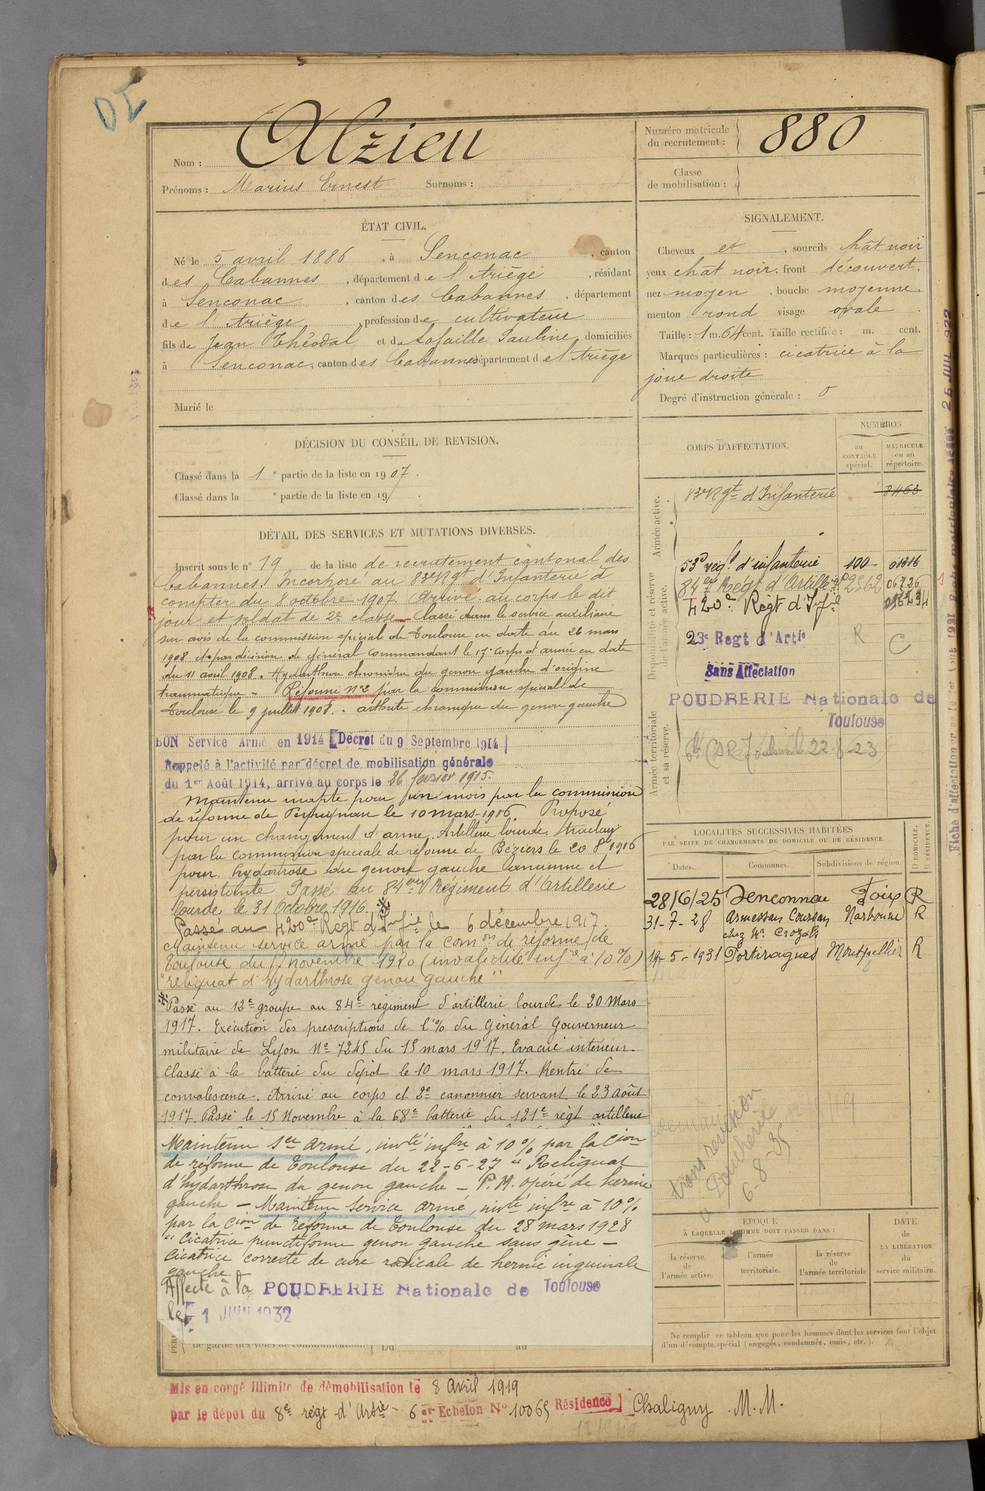 DI
Nom : Alzieu
Prénoms : Marius Ernest Surnoms :
Numéro matricule du recrutement : 880
Classe de mobilisation :
ÉTAT CIVIL.
Né le 5 avril 1886, à Senconac, canton
des Cabannes, département de l'Ariège, résidant
à Senconac, canton des Cabannes, département
de l'Ariège, profession de cultivateur
fils de Jean Théodal et de Lafaille Pauline, domiciliés
à Senconac, canton des Cabannes département de l'Ariège
Marié le
SIGNALEMENT.
Cheveux et , sourcils chât noir
yeux chat noir, front découvert.
nez moyen, bouche moyenne
menton rond visage ovale.
Taille : 1 m. 64 cent. Taille rectifiée : m. cent.
Marques particulières : cicatrice à la
joue droite
Degré d'instruction générale : 0
DÉCISION DU CONSEIL DE REVISION.
Classé dans la 1e partie de la liste en 1907.
Classé dans la e partie de la liste en 19
DÉTAIL DES SERVICES ET MUTATIONS DIVERSES.
Inscrit sous le n° 19 de la liste de recrutement cantonal des
Cabannes. Incorporé au 83e Rgt d'Infanterie à
compter du 8 octobre 1907. Arrivé au corps le dit
jour et soldat de 2e classe. Classé dans le service auxiliaire
sur avis de la commission spéciale de Toulouse en date du 26 mars
1908 et par décision du général commandant le 17e corps d'armée en date
du 11 avril 1908. Hydarthrose chronique du genou gauche d'origine
traumatique - Réformé N°2 par la commission spéciale de
Toulouse le 9 juillet 1908. arthrite chronique du genou gauche
BON Service Armé en 1914 [Décret du 9 Septembre 1914]
Rappelé à l'activité par décret de mobilisation générale
du 1er Août 1914, arrivé au corps le 26 février 1915.
Maintenu inapte pour un mois par la commission
de réforme de Perpignan le 10 mars 1916. Proposé
pour un changement d'arme. Artillerie lourde
par la commission spéciale de réforme de Béziers le 20 8bre 1916
pour hydartrose du genou gauche ancienne et
persistante Passé au 84eme Régiment d'Artillerie
lourde le 31 Octobre 1916.
Passé au 420e Regt d'Infie le 6 décembre 1917.
Maintenu service armé par la Comon de réforme de
Toulouse du 17 novembre 1920 (invalidité infre à 10%)
"reliquat d'hydarthrose genou gauche"
Passé au 13e groupe au 84e régiment d'artillerie lourde le 20 Mars
1917. Exécution des prescriptions de l'% du Général Gouverneur
militaire de Lyon N° 7245 du 15 mars 1917. Evacué intérieur.
Classé à la batterie du dépôt le 10 mars 1917. Rentré de
convalescence. Arrivé au corps et 2e canonnier servant le 23 août
1917. Passé le 15 Novembre à la 68e batterie du 121e régt artillerie
Maintenu sce armé, invté infre à 10% par la Cion
de réforme de Toulouse du 22-6-27 "Reliquat
d'hydarthrose du genou gauche - P.N. opéré de hernie
gauche - Maintenu service armé, invté infre à 10%
par la Cion de réforme de Toulouse du 28 mars 1928
"Cicatrice punctiforme genou gauche sans gêne -
cicatrice correcte de cure radicale de hernie inguinale
gauche"
Affecté à la POUDRERIE Nationale de Toulouse
le 1 JUIN 1932
de garde des voies de communication Du au
CORPS D'AFFECTATION.
NUMÉROS
au contrôle spécial.
matricule ou au répertoire.
Armée active.
83e Rgt d'Infanterie
Disponibilité et réserve de l'armée active.
53e regt d'infanterie 100
84eme Regt d'Artillie 06736
420e Regt d'Infie
23e Regt d'Artie R C
Sans Affectation
POUDRERIE Nationale de
Toulouse
Armée territoriale et sa réserve.
LOCALITÉS SUCCESSIVES HABITÉES
PAR SUITE DE CHANGEMENTS DE DOMICILE OU DE RÉSIDENCE.
Dates. Communes. Subdivisions de région. D. DOMICILE. R. RÉSIDENCE.
28/6/25 Senconnac Foix R
31-7-28 Armessan Coursan Narbonne R
chez Mr Crozals
19-5-1931 Portiragnes Montpellier R
sans révision
Poudrerie
6-8-35
ÉPOQUE
À LAQUELLE L'HOMME DOIT PASSER DANS :
la réserve de l'armée active.
l'armée territoriale.
la réserve de l'armée territoriale
DATE de LA LIBÉRATION du service militaire.
Ne remplir ce tableau que pour les hommes dont les services font l'objet
d'un décompte spécial (engagés, condamnés, omis, etc.).
Mis en congé illimité de démobilisation le 8 Avril 1919
par le dépôt du 8e régt d'Artie - 6er Echelon N° 10065 Résidence] Chaligny M.M.